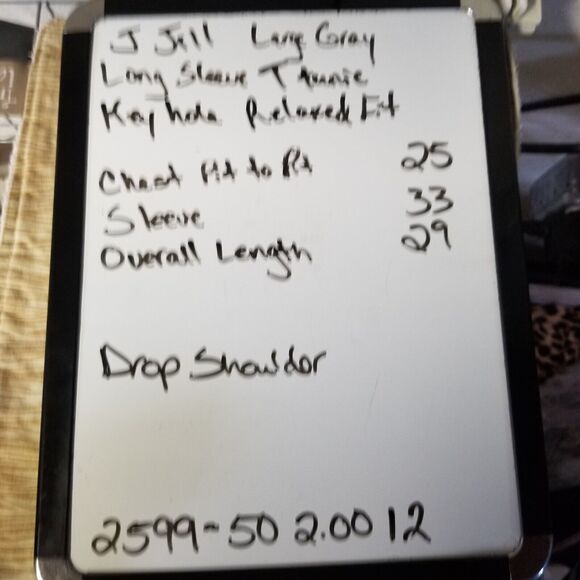 J Jill Large Gray
Long Sleeve Tunnic
Keyhole Relaxed Fit
Chest Pit to Pit 25
Sleeve 33
Overall Length 29
Drop Shoulder
2599-50 2.00 12